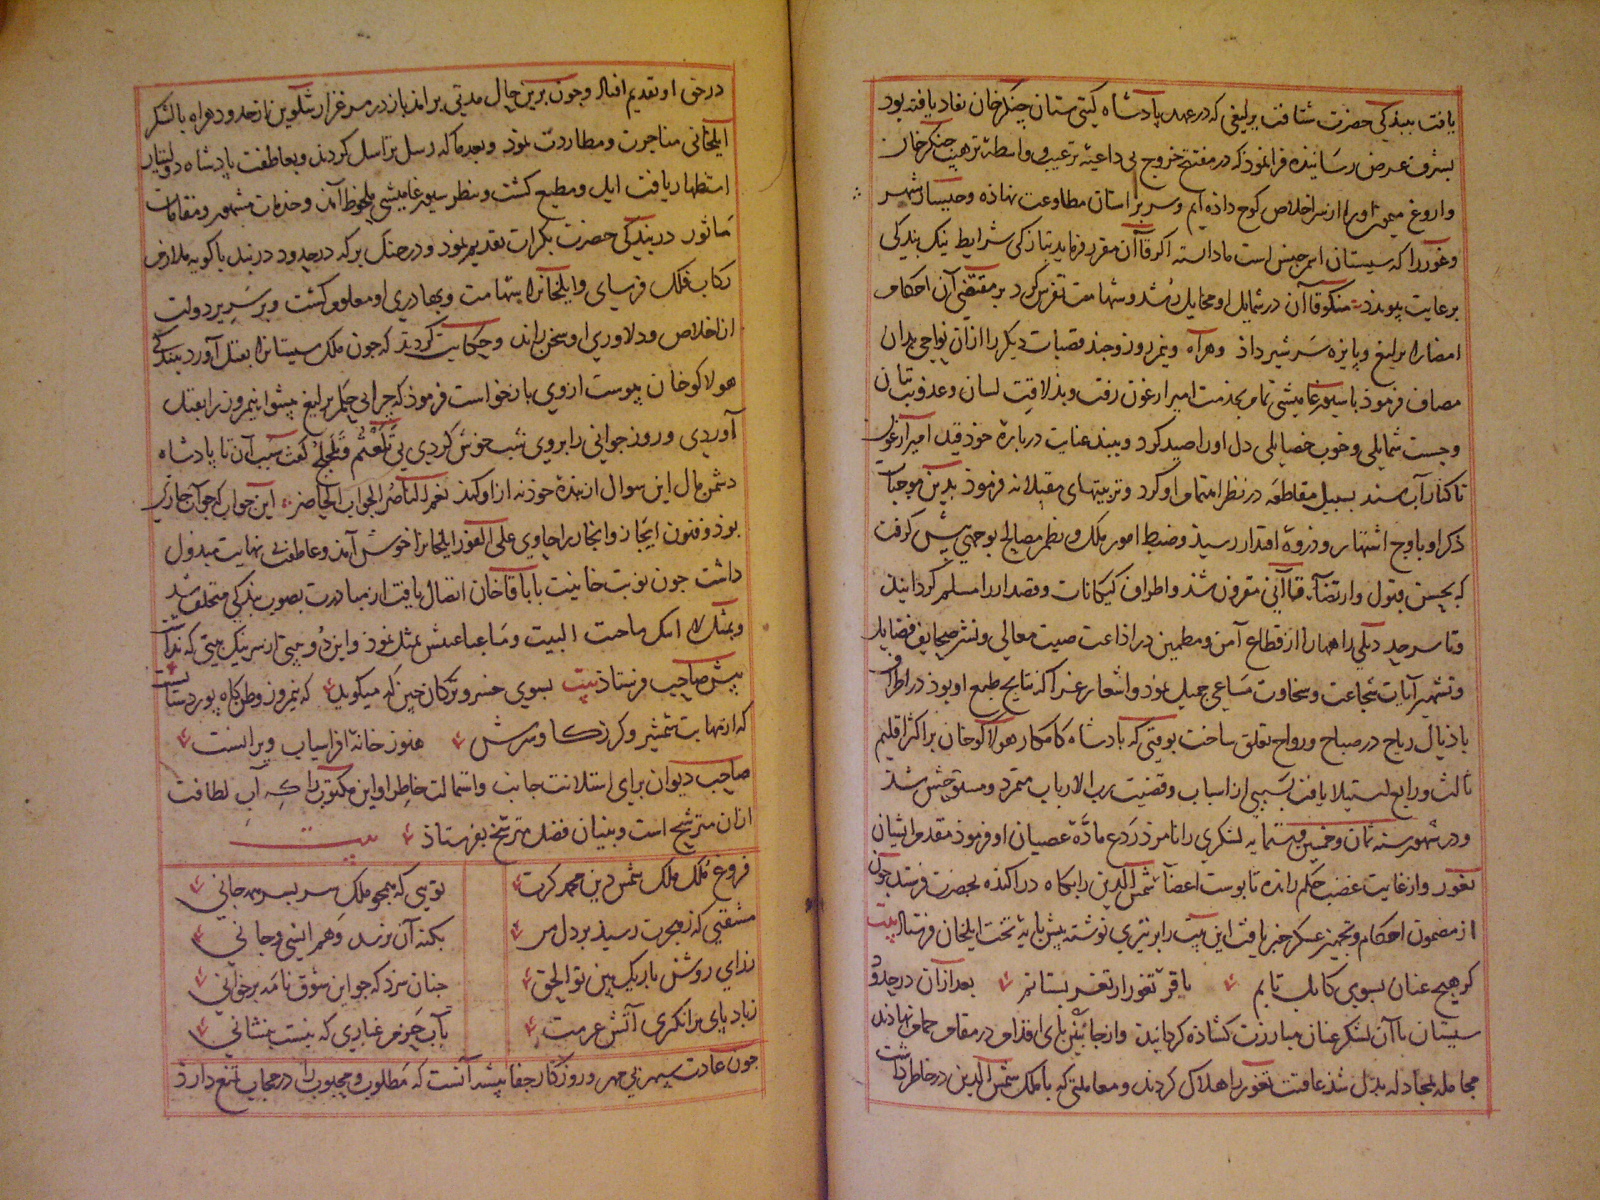 یافت ببندکی حضرت شتافت یرلیغی که در عهد پادشاه کیتی ستان چنکزخان نفاد یافته بود
بشرف عرض رسانیده فرانمود که در مفتتح خروج بی داعیهٔ ترغیب و واسطهٔ ترهیب جنکزخان
و اروغ میمون او را از سر اخلاص کوج داده ایم و سر بر استان مطاوعت نهاده و حبسار شهر
وغور را که سیستان اسم جنس است ما دانسته اکر قاآن مقرر فرماید بتازکی شرایط نیک بندکی
برعایت پیوندد منکوقاآن در شمایل او مخایل رشد و شهامت تفرس کرد بر مقتضی آن احکام
امضا را یرلیغ و پایزه سرشیر داد و هراه و نیمروز و جند قصبات دیکر را از آن نواحی بدان
مصاف فرمود با سیورغامیشی تمام بخدمت امیر ارغون رفت و بذلاقت لسان و عذوبت بیان
و حسن شمایلی و خوب خصایلی دل او را صید کرد و بیند عنایت دربارهٔ خود قید امیر ارغون
تا کنار آب سند بسبیل مقاطعه در نظر اهتمام او کرد و تربیتهای مقبلانه فرمود بدین موجبات
ذکر او باوج اشتهار و ذروهٔ اقتدار رسید و ضبط امور ملک و نظم مصالح بوجهی پیش کرفت
که بحسن قبول و ارتضاء قاآنی مقرون شد و اطراف کیکانات و قصدار را مسلم کردانید
و تا سرحد دهلی راهها را از قطاع آمن و مطمین در اذاعت صیت معالی و نشر صحایف فضایل
و تشهیر آیات شجاعت و سخاوت مساعی جمیل نمود و اشعار غرا که نتایج طبع او بود در اطراف
باذیال ریاح در صباح و رواح تعلق ساخت بوقتی که پادشاه کامکار هولاکوخان بر اکثر اقلیم
ثالث و رابع استیلا یافت بسببی از اسباب و قضیت رب الارباب متمرد و مستوحش شد
و در شهور سنه ثمان و خمسین و ستمایه لشکری را نامزد ردع مادهٔ عصیان او فرمود مقدم ایشان
تغور و از غایت غضب حکم رانده تا پوست اعضاء شمس الدین را بکاه دراکنده بحضرت فرستد چون
از مضمون احکام و تجهیز عسکر خبر یافت این بیت را بر تیری نوشته پیش پایهٔ تخت ایلخان فرستاد بیت
کر هیچ عنان بسوی کابل تابم یا قر تغور از تغر بستانم بعد از آن در حدود
سیستان با آن لشکر عنان مبارزت کشاده کردانید و از جانبین پای اقدام در مقام حمام نهادند
مجامله بمجادله بدل شد عاقبت تغور را هلاک کردند و معاملتی که با ملک شمس الدین در خاطر داشت
در حق او تقدیم افتاد و چون برین حال مدتی برامد باز در مرغزار شکوین از حدود هراه با لشکر
ایلخانی مناجرت و مطاردت نمود و بعد ما که رسل تراسل کردند و بعاطفت پادشاه
استظهار یافت ایل و مطیع کشت و بنظر سیورغامیشی ملحوظ آمد و خدمات مشهور و مقامات
ماثور در بندکی حضرت بکرات تقدیم نمود و در جنک برکه در حدود دربند باکویه ملازم
رکاب فلک فرسای و ایلخانرا شهامت و بهادری او معلوم کشت و بر سریر دولت
از اخلاص و دلاوری او سخن راند و حکایت کردند که جون ملک سیستانرا بقتل آورد ببندکی
هولاکوخان پیوست ازوی بازخواست فرمود که چرا بی حکم یرلیغ پیشوا نیمروز را بقتل
آوردی و روز جوانی را بروی شب خوش کردی بی تلعثم و تلجلج کفت سبب آن تا پادشاه
دشمن مال این سوال از بنده خود نه از او کند نعم الناصر الجواب الحاضر این جواب که جوان
بود و فنون ایجاز و انجاز را حاوی علی الفور ایلخانرا خوش آمد و عاطفت بی نهایت مبذول
داشت جون نوبت خانیت باباقاخان اتصال یافت از مبادرت بصوب بندکی متخلف شد
و بتمثل لا ابک صاحب البیت و ما عبا عنتش تمثل نمود و این دو بیتی از سر نیک بیتی که نداشت
پیش صاحب فرستاد بیت بسوی خسرو ترکان چین که میکوید که نیمروز وطن کاه پور دستانست
که از نهابت شمشیر و کرز کاوسرش هنوز خانهٔ افراسیاب ویرانست
صاحب دیوان برای استلانت جانب و استمالت خاطر او این مکتوب را که آب لطافت
از آن مترشح است و بنیان فضل مترشح بفرستاد بیت
فروغ ملک ملک شمس دین محمد کرت تویی که همجو ملک سر بسر همه جانی
مشقتی که ز هجرت رسید بر دل من بکنه آن نرسد وهم انسی و جانی
ندای روشن باریک بین تو الحق جنان سزد که جو این شوق نامه برخوانی
ز باد پای برانکزی آتش عزمت بآب حزم غباری که هست بنشانی
جون عادت سپهر بی مهر و روزکار جفا پیشه آنست که مطلوب و محبوب را در حجاب تمنع دارد